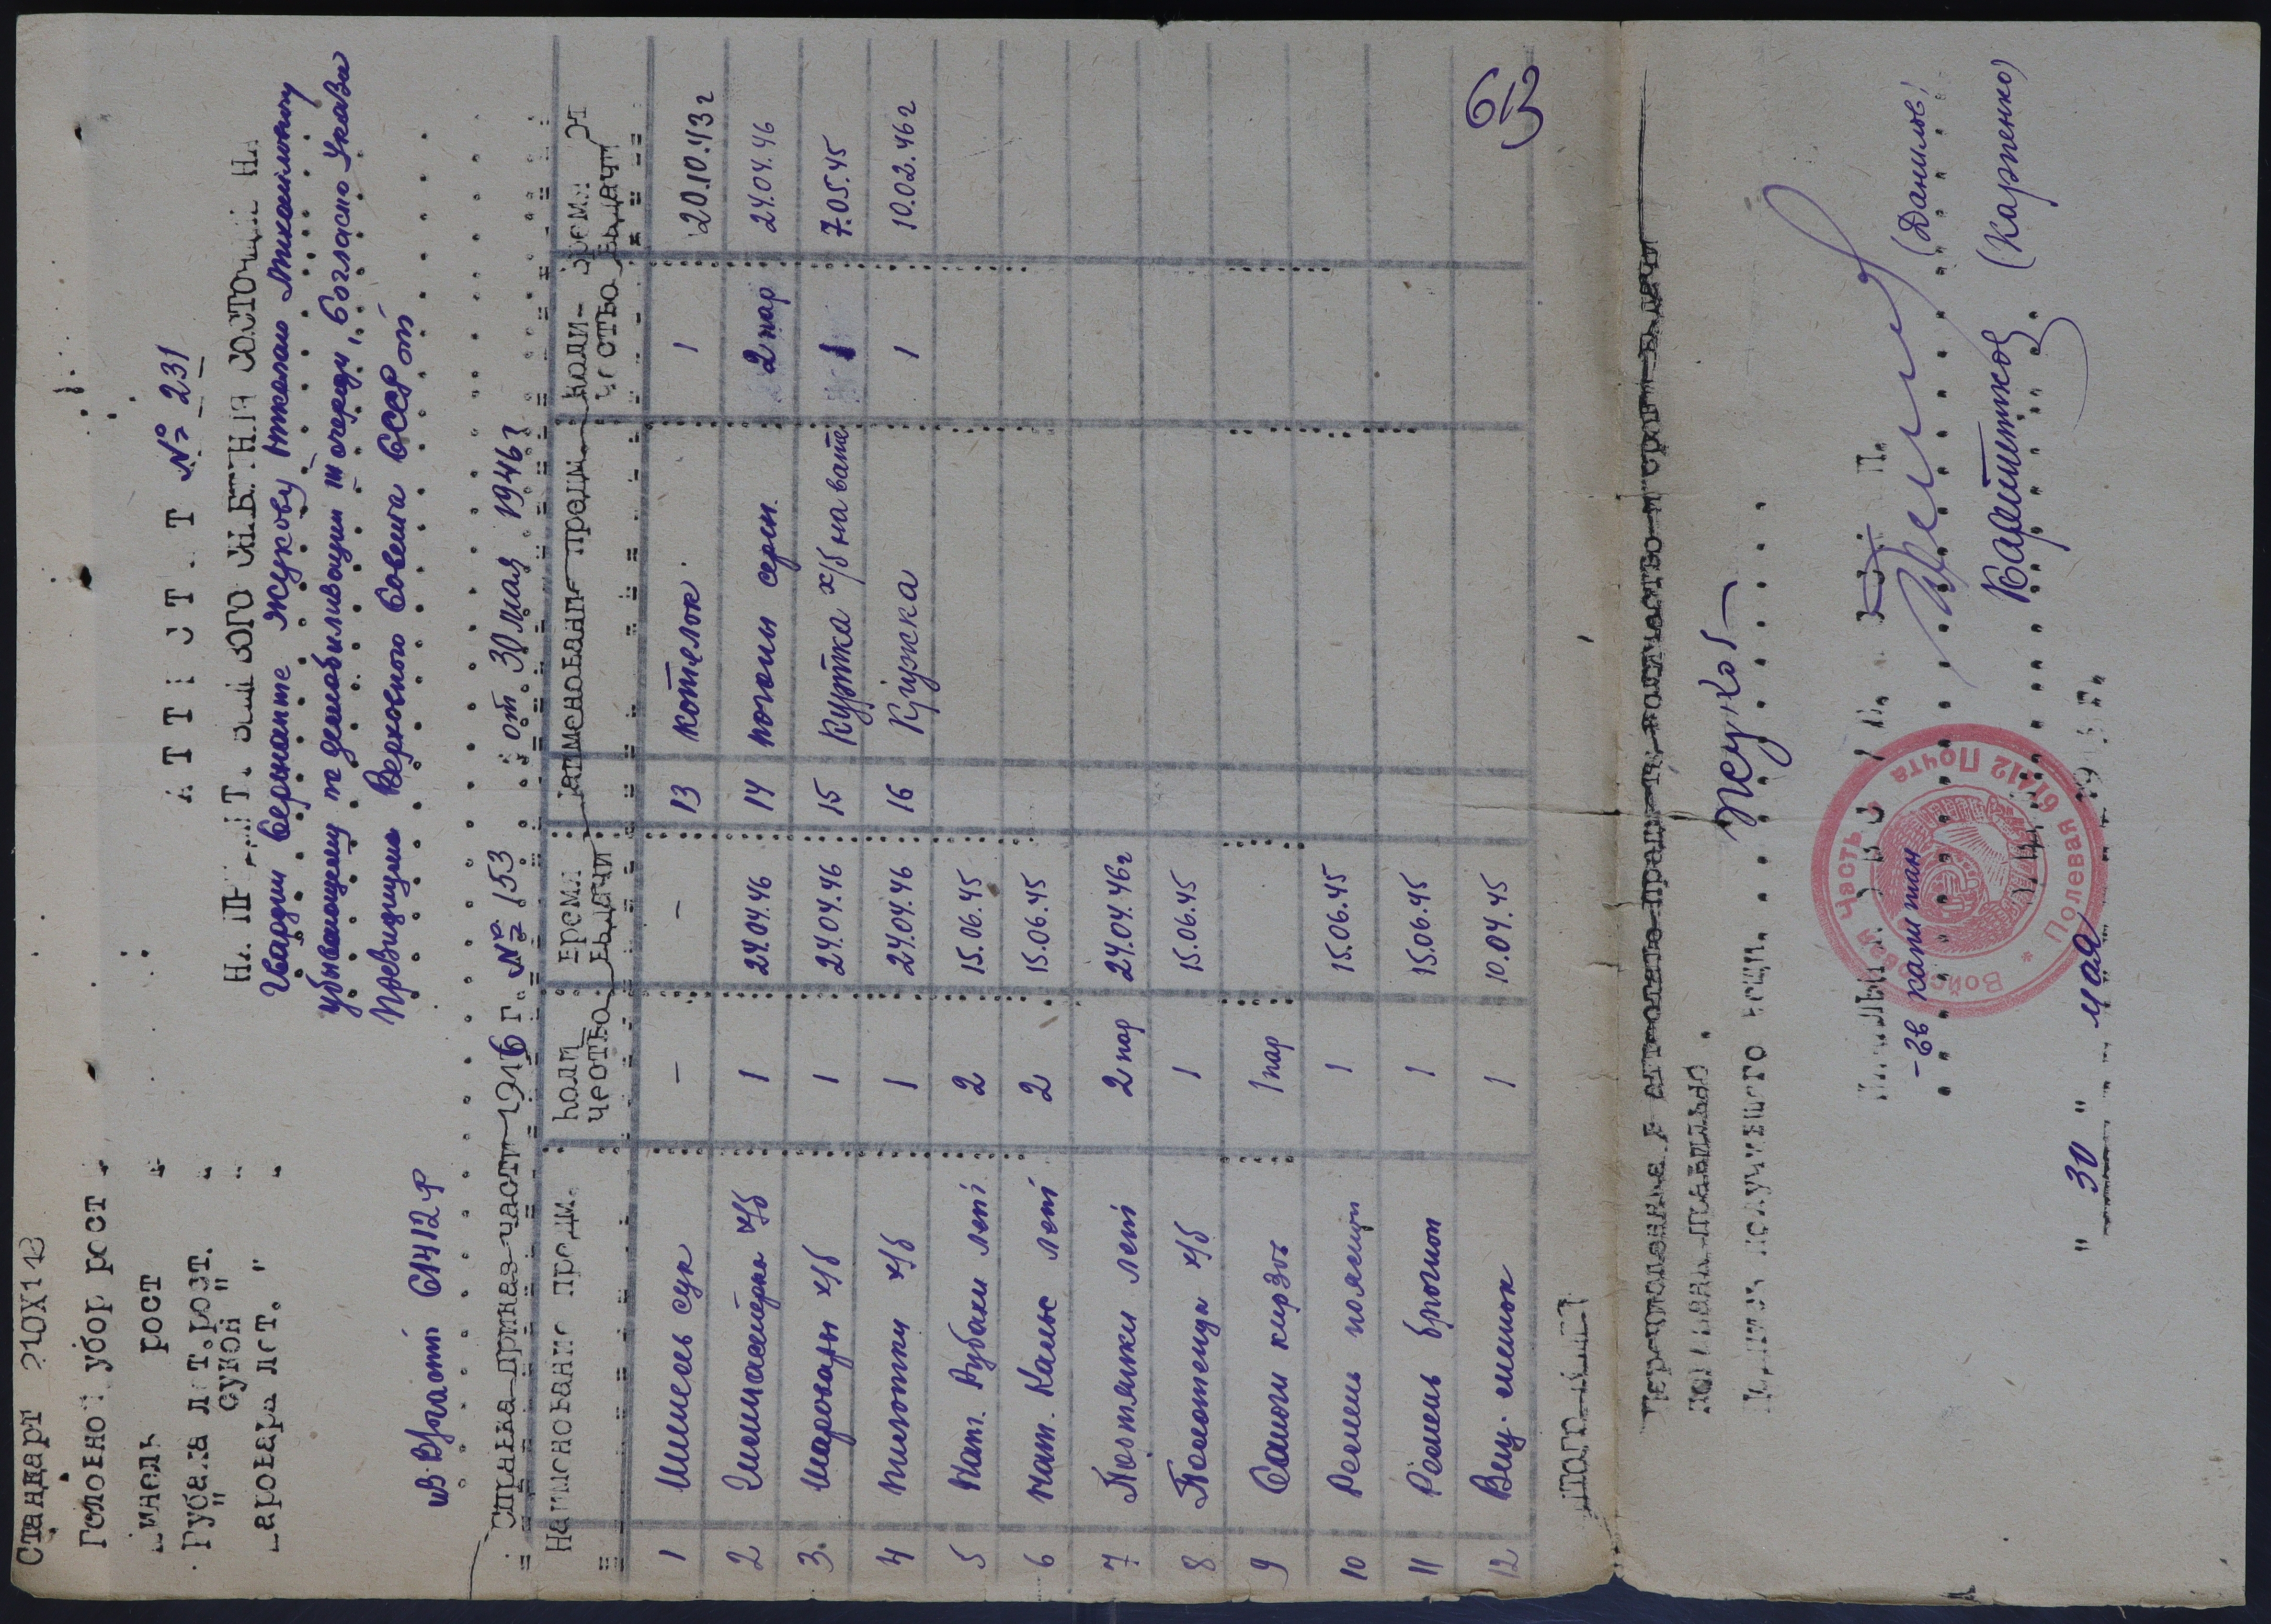 Стандарт 210X143
Головной убор рост
рост
Рубаха лет. рост.
" сукон "
Шаровара лет. "
АТТЕСТАТ № 231
Гвардии Сержанте Жукову Николаю
убывающему по демобилизации III очереди, Согласно Указа
Президиума Верховного Совета СССР от
из В/части 61412 Ф
Справка приказ части 1946 г. № 153 от 30 мая 1946 г
Наименование предм. Коли чество Время выдачи Наименование предм. Коли- чество Время выдачи
1 Шинель сук - - 13 Котелок 1 20.10.43 г
2 Гимнастерка х/б 1 24.04.46 14 погоны серж. 2 пар 24.04.46
3. Шаровары х/б 1 24.04.46 15 Куртка х/б на вате 1 7.05.45
4 Пилотки х/б 1 24.04.46 16 Кружка 1 10.02.46 г
5 Нат. Рубахи лет 2 15.06.45
6 Нат. Кальс лет 2 15.06.45
7 Портянки лет 2 пар 24.04.46 г
8 Полотенца х/б 1 15.06.45
9 Сапоги кирзов 1 пар
10 Ремень поясной 1 15.06.45
11 Ремень брючной 1 15.06.45
12 Вещ. мешок 1 10.04.45
Перечисленные в аттестате предметы, количество и сроки выдачи
показаны правильно.
Жуков
гв капитан (Данилов)
(Карпенко)
"30" мая
Войсковая Часть * Полевая Почта 61412